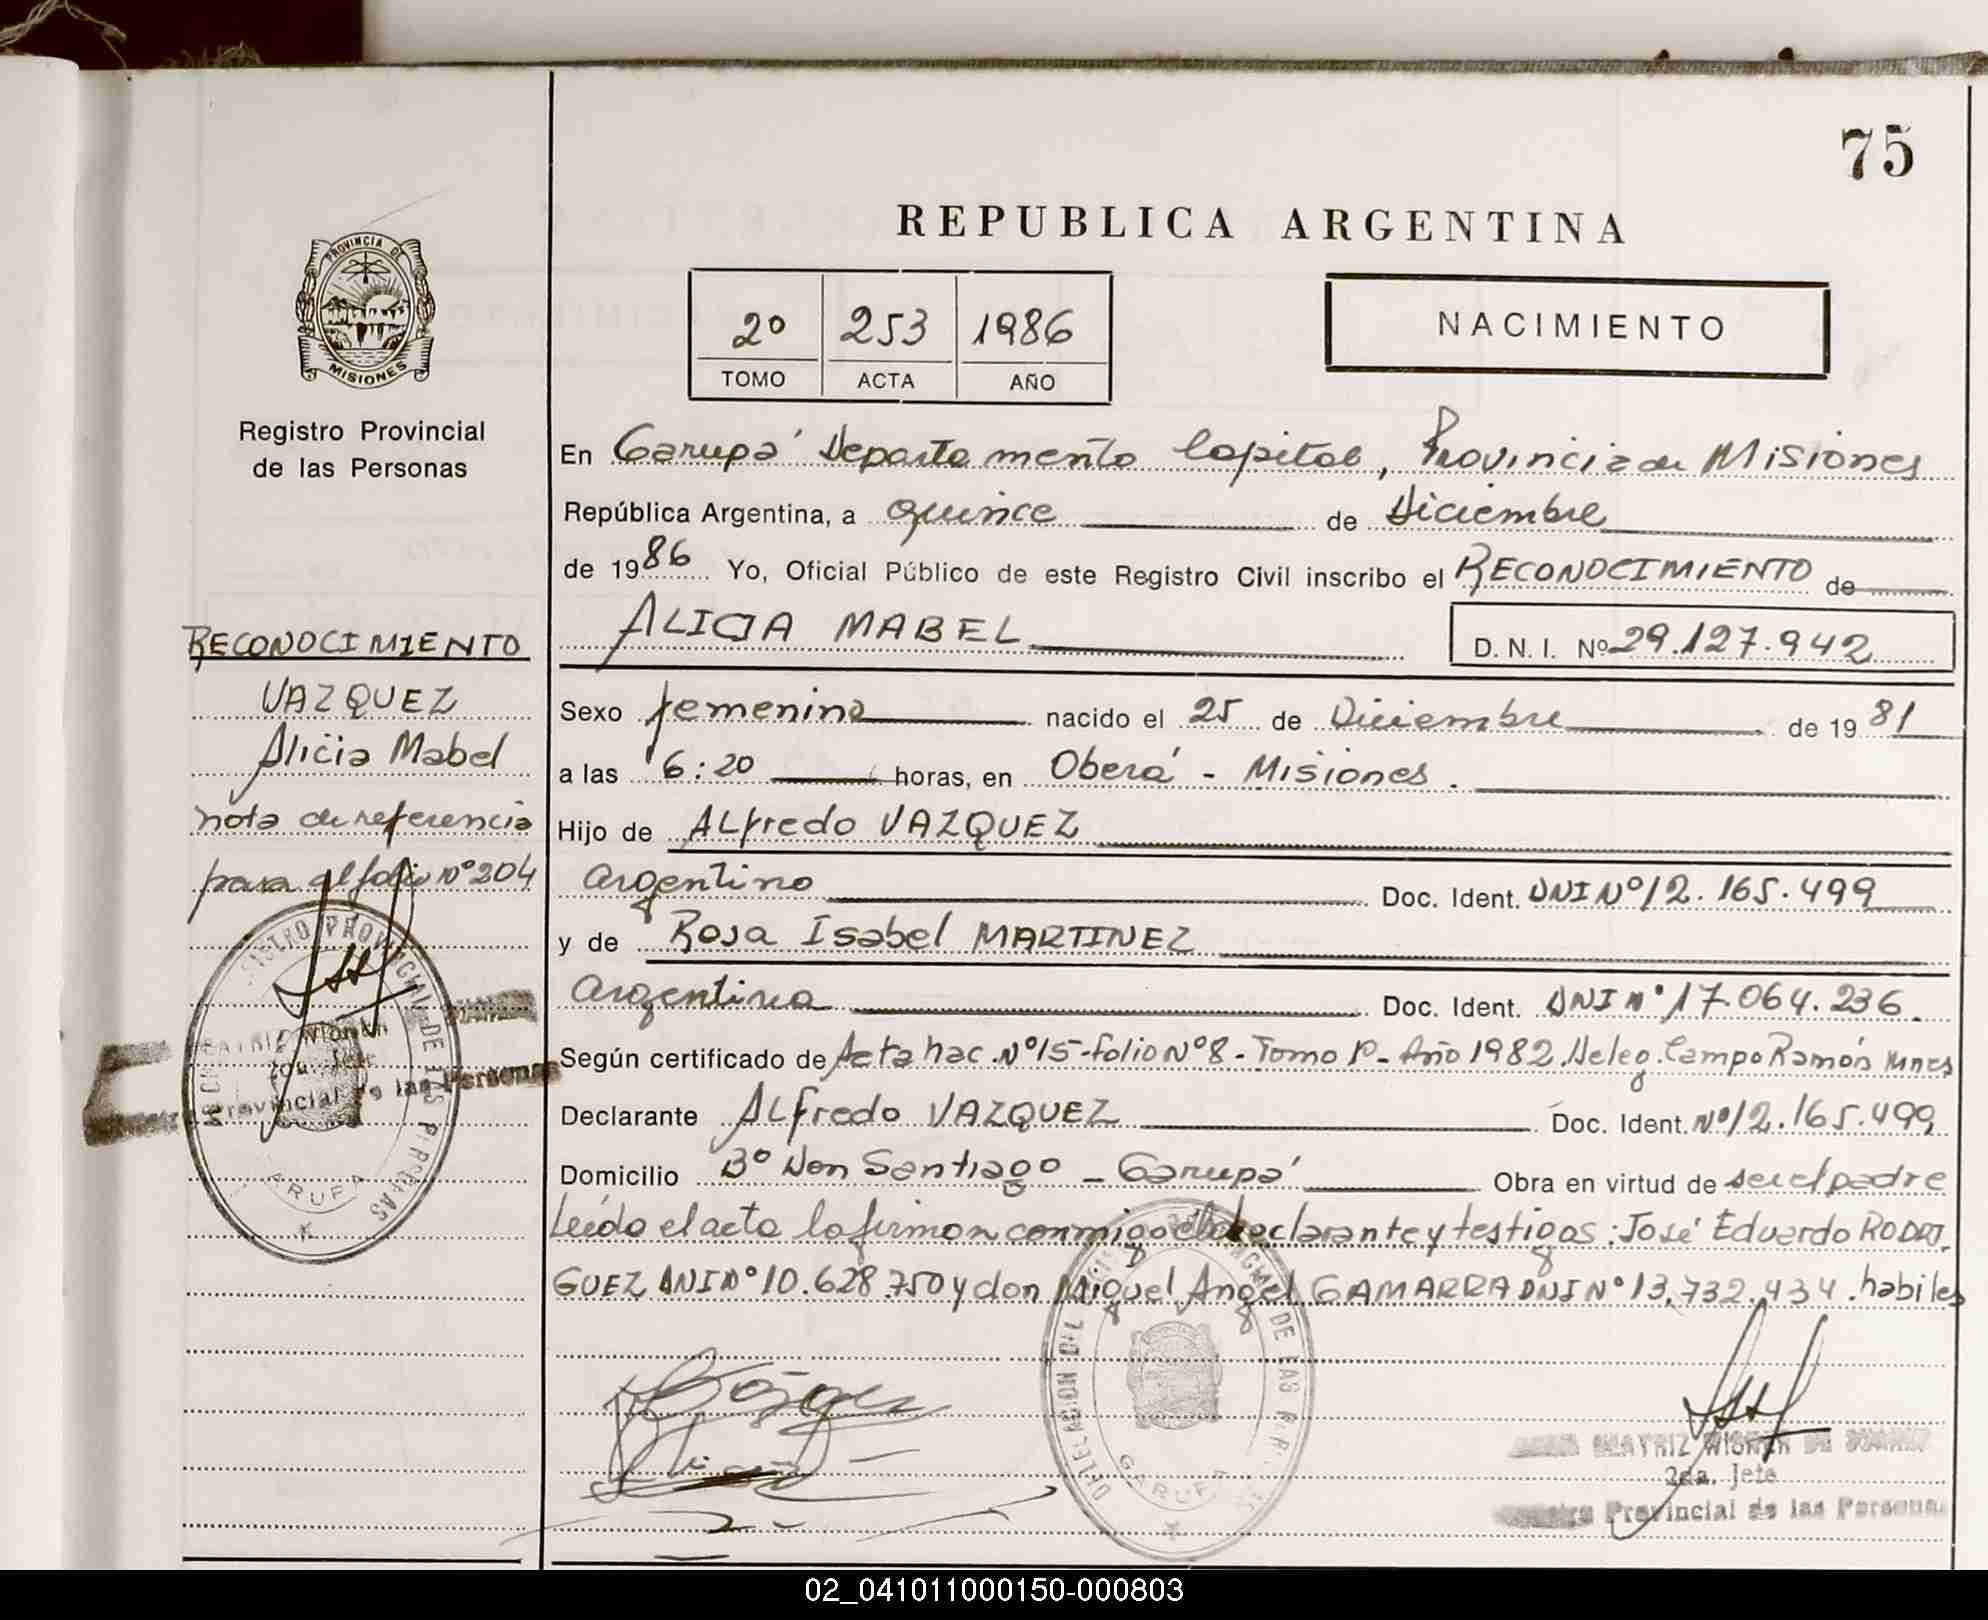 75
REPUBLICA ARGENTINA
PROVINCIA DE
MISIONES
Registro Provincial
de las Personas
2º 253 1986
TOMO ACTA AÑO
NACIMIENTO
En Garupá Departamento Capital, Provincia de Misiones
República Argentina, a quince de Diciembre
de 1986 Yo, Oficial Público de este Registro Civil inscribo el RECONOCIMIENTO de
ALICIA MABEL
D. N. I. Nº 29.127.942
RECONOCIMIENTO
VAZQUEZ
Alicia Mabel
nota de referencia
para el folio Nº 204
Sexo femenino nacido el 25 de Diciembre de 1981
a las 6:20 horas, en Oberá - Misiones.
Hijo de ALfredo VAZQUEZ
argentino Doc. Ident. DNI Nº 12.165.499
y de Rosa Isabel MARTINEZ
argentina Doc. Ident. DNI Nº 17.064.236.
Según certificado de Acta Nac. Nº 15-folio Nº 8- Tomo 1º- Año 1982. Deleg. Campo Ramón Mnes
Declarante ALfredo VAZQUEZ Doc. Ident. Nº 12.165.499
Domicilio Bº Don Santiago - Garupá Obra en virtud de ser el padre
Leída el acta la firman conmigo el declarante y testigos: José Eduardo RODRI-
GUEZ DNI Nº 10.628.750 y don Miguel Angel GAMARRA DNI Nº 13.732.434. habiles
DELEGACION DEL REGISTRO PROVINCIAL DE LAS PERSONAS
GARUPA
BEATRIZ WIONCK DE
2da. Jefe
Registro Provincial de las Personas
02_041011000150-000803